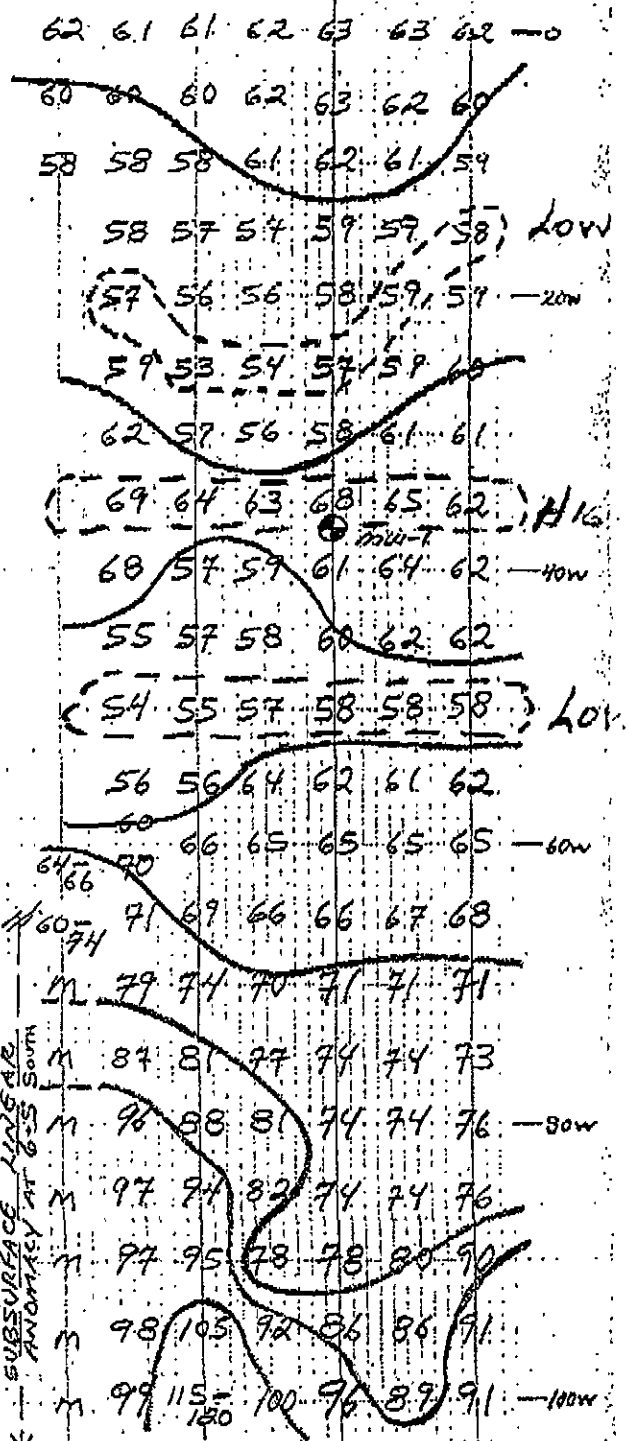 62 61 61 62 63 63 62 —0
60 60 60 62 63 62 60
58 58 58 61 62 61 59
58 57 57 59 59 58 Low
57 56 56 58 59 59 —20W
59 53 54 57 59 60
62 57 56 58 61 61
69 64 63 68 65 62 HIG
MW-1
68 57 59 61 64 62 —40W
55 57 58 60 62 62
54 55 57 58 58 58 Low
56 56 64 62 61 62
60
64-66 70 66 65 65 65 65 —60W
60-74 71 69 66 66 67 68
M 79 74 70 71 71 71
M 87 81 77 74 74 73
M 96 88 81 74 74 76 —80W
M 97 94 82 74 74 76
M 97 95 78 78 80 90
M 98 105 92 86 86 91
M 99 115-120 100 96 89 91 —100W
SUBSURFACE LINEAR
ANOMALY AT 6-5 SOUTH